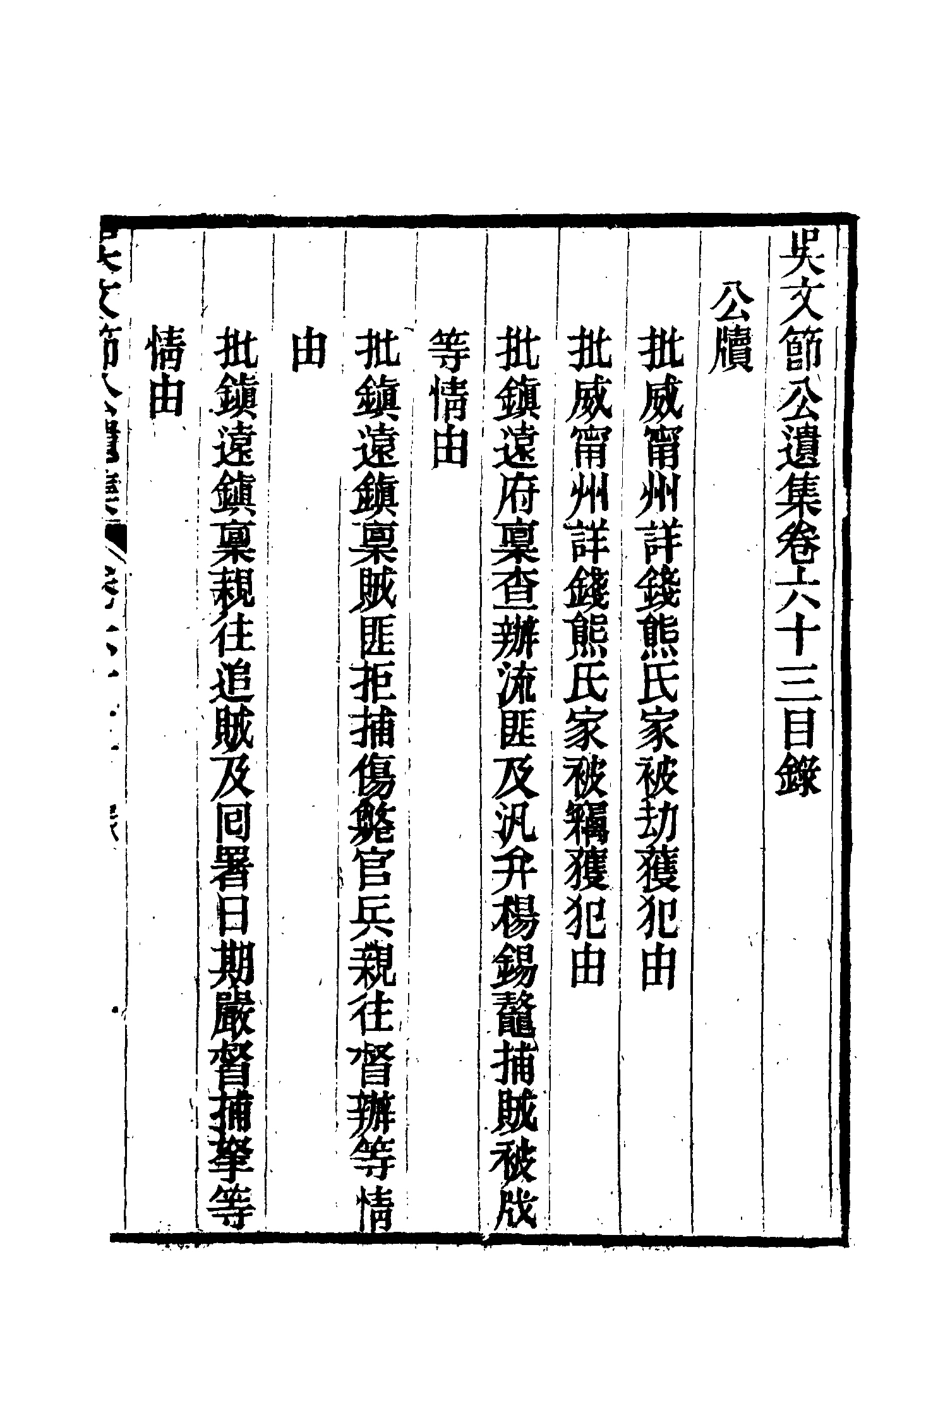 吳文節公遺集卷六十三目錄
公牘
批威甯州詳錢熊氏家被劫獲犯由
批威甯州詳錢熊氏家被竊獲犯由
批鎭遠府稟查辦流匪及汛弁楊錫鼇捕賊被戕
等情由
批鎭遠鎭稟賊匪拒捕傷斃官兵親往督辦等情
由
批鎭遠鎭稟親往追賊及囘署日期嚴督捕拏等
情由
吳文節公遺集 卷六十三 目錄